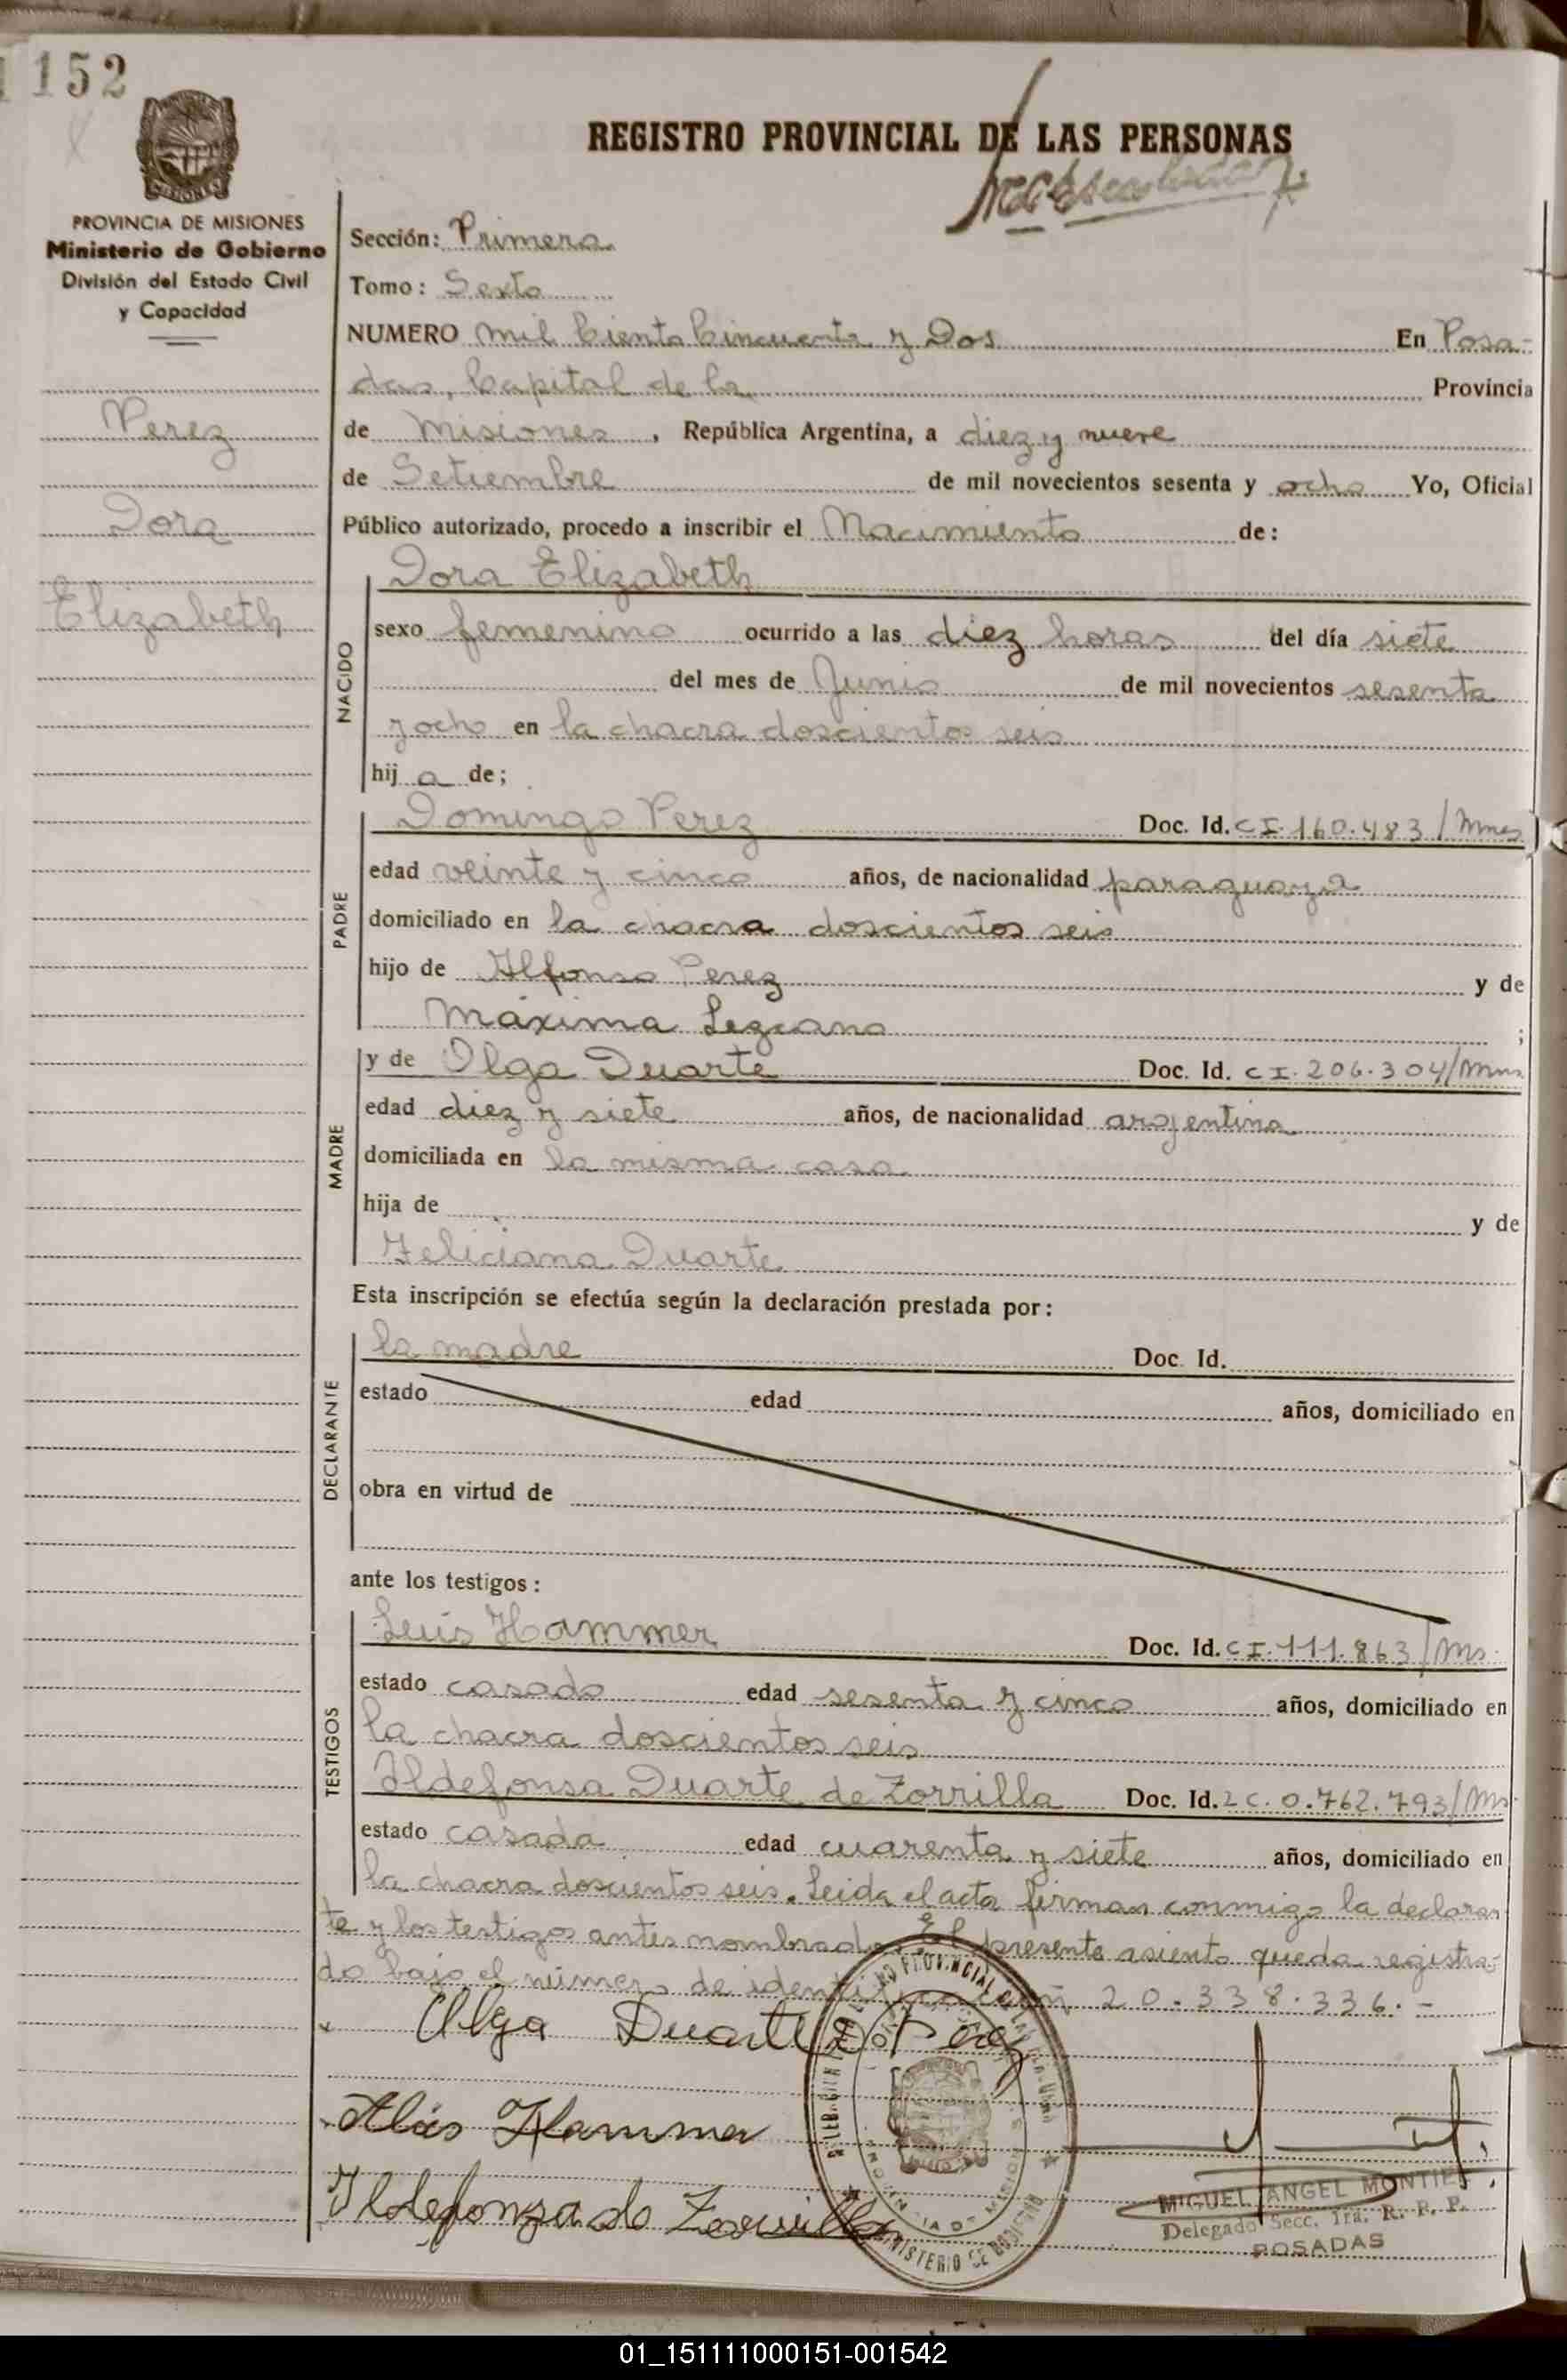 1152
REGISTRO PROVINCIAL DE LAS PERSONAS
PROVINCIA DE MISIONES
Ministerio de Gobierno
División del Estado Civil
y Capacidad
Perez
Dora
Elizabeth
Sección: Primera
Tomo: Sexto
NUMERO Mil Ciento Cincuenta y Dos En Posa-
das, Capital de la Provincia
de Misiones, República Argentina, a diez y nueve
de Setiembre de mil novecientos sesenta y ocho Yo, Oficial
Público autorizado, procedo a inscribir el Nacimiento de:
NACIDO
Dora Elizabeth
sexo femenino ocurrido a las diez horas del día siete
del mes de Junio de mil novecientos sesenta
y ocho en la chacra doscientos seis
hij a de;
PADRE
Domingo Perez Doc. Id. CI. 160.483/Mnes
edad veinte y cinco años, de nacionalidad paraguaya
domiciliado en la chacra doscientos seis
hijo de Alfonso Perez y de
Máxima Lezcano ;
MADRE
y de Olga Duarte Doc. Id. CI. 206.304/Mns
edad diez y siete años, de nacionalidad argentina
domiciliada en la misma casa
hija de y de
Feliciana Duarte
Esta inscripción se efectúa según la declaración prestada por:
DECLARANTE
la madre Doc. Id.
estado edad años, domiciliado en
obra en virtud de
ante los testigos:
TESTIGOS
Luis Hammer Doc. Id. CI. 111.863/Ms.
estado casado edad sesenta y cinco años, domiciliado en
la chacra doscientos seis
Ildefonsa Duarte de Zorrilla Doc. Id. LC. 0.762.793/Ms
estado casada edad cuarenta y siete años, domiciliado en
la chacra doscientos seis. Leida el acta firman conmigo la declaran
te y los testigos antes nombrado. El presente asiento queda registra-
do bajo el número de identificación 20.338.336.-
Olga Duarte D Perez
Luis Hammer
Ildefonza de Zorrilla
MIGUEL ANGEL MONTIEL
Delegado Secc. 1ra. R. P. P.
POSADAS
01_151111000151-001542